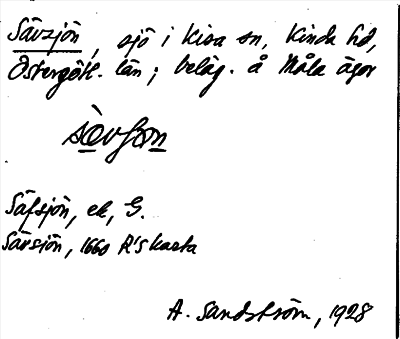 Sävsjön, sjö i Kisa sn, Kinda hd,
Östergötl. län; beläg. å Måla ägor
sævʃøn
Säfsjön, ek, G.
Särsjön, 1660 R's karta
A. Sandström, 1928